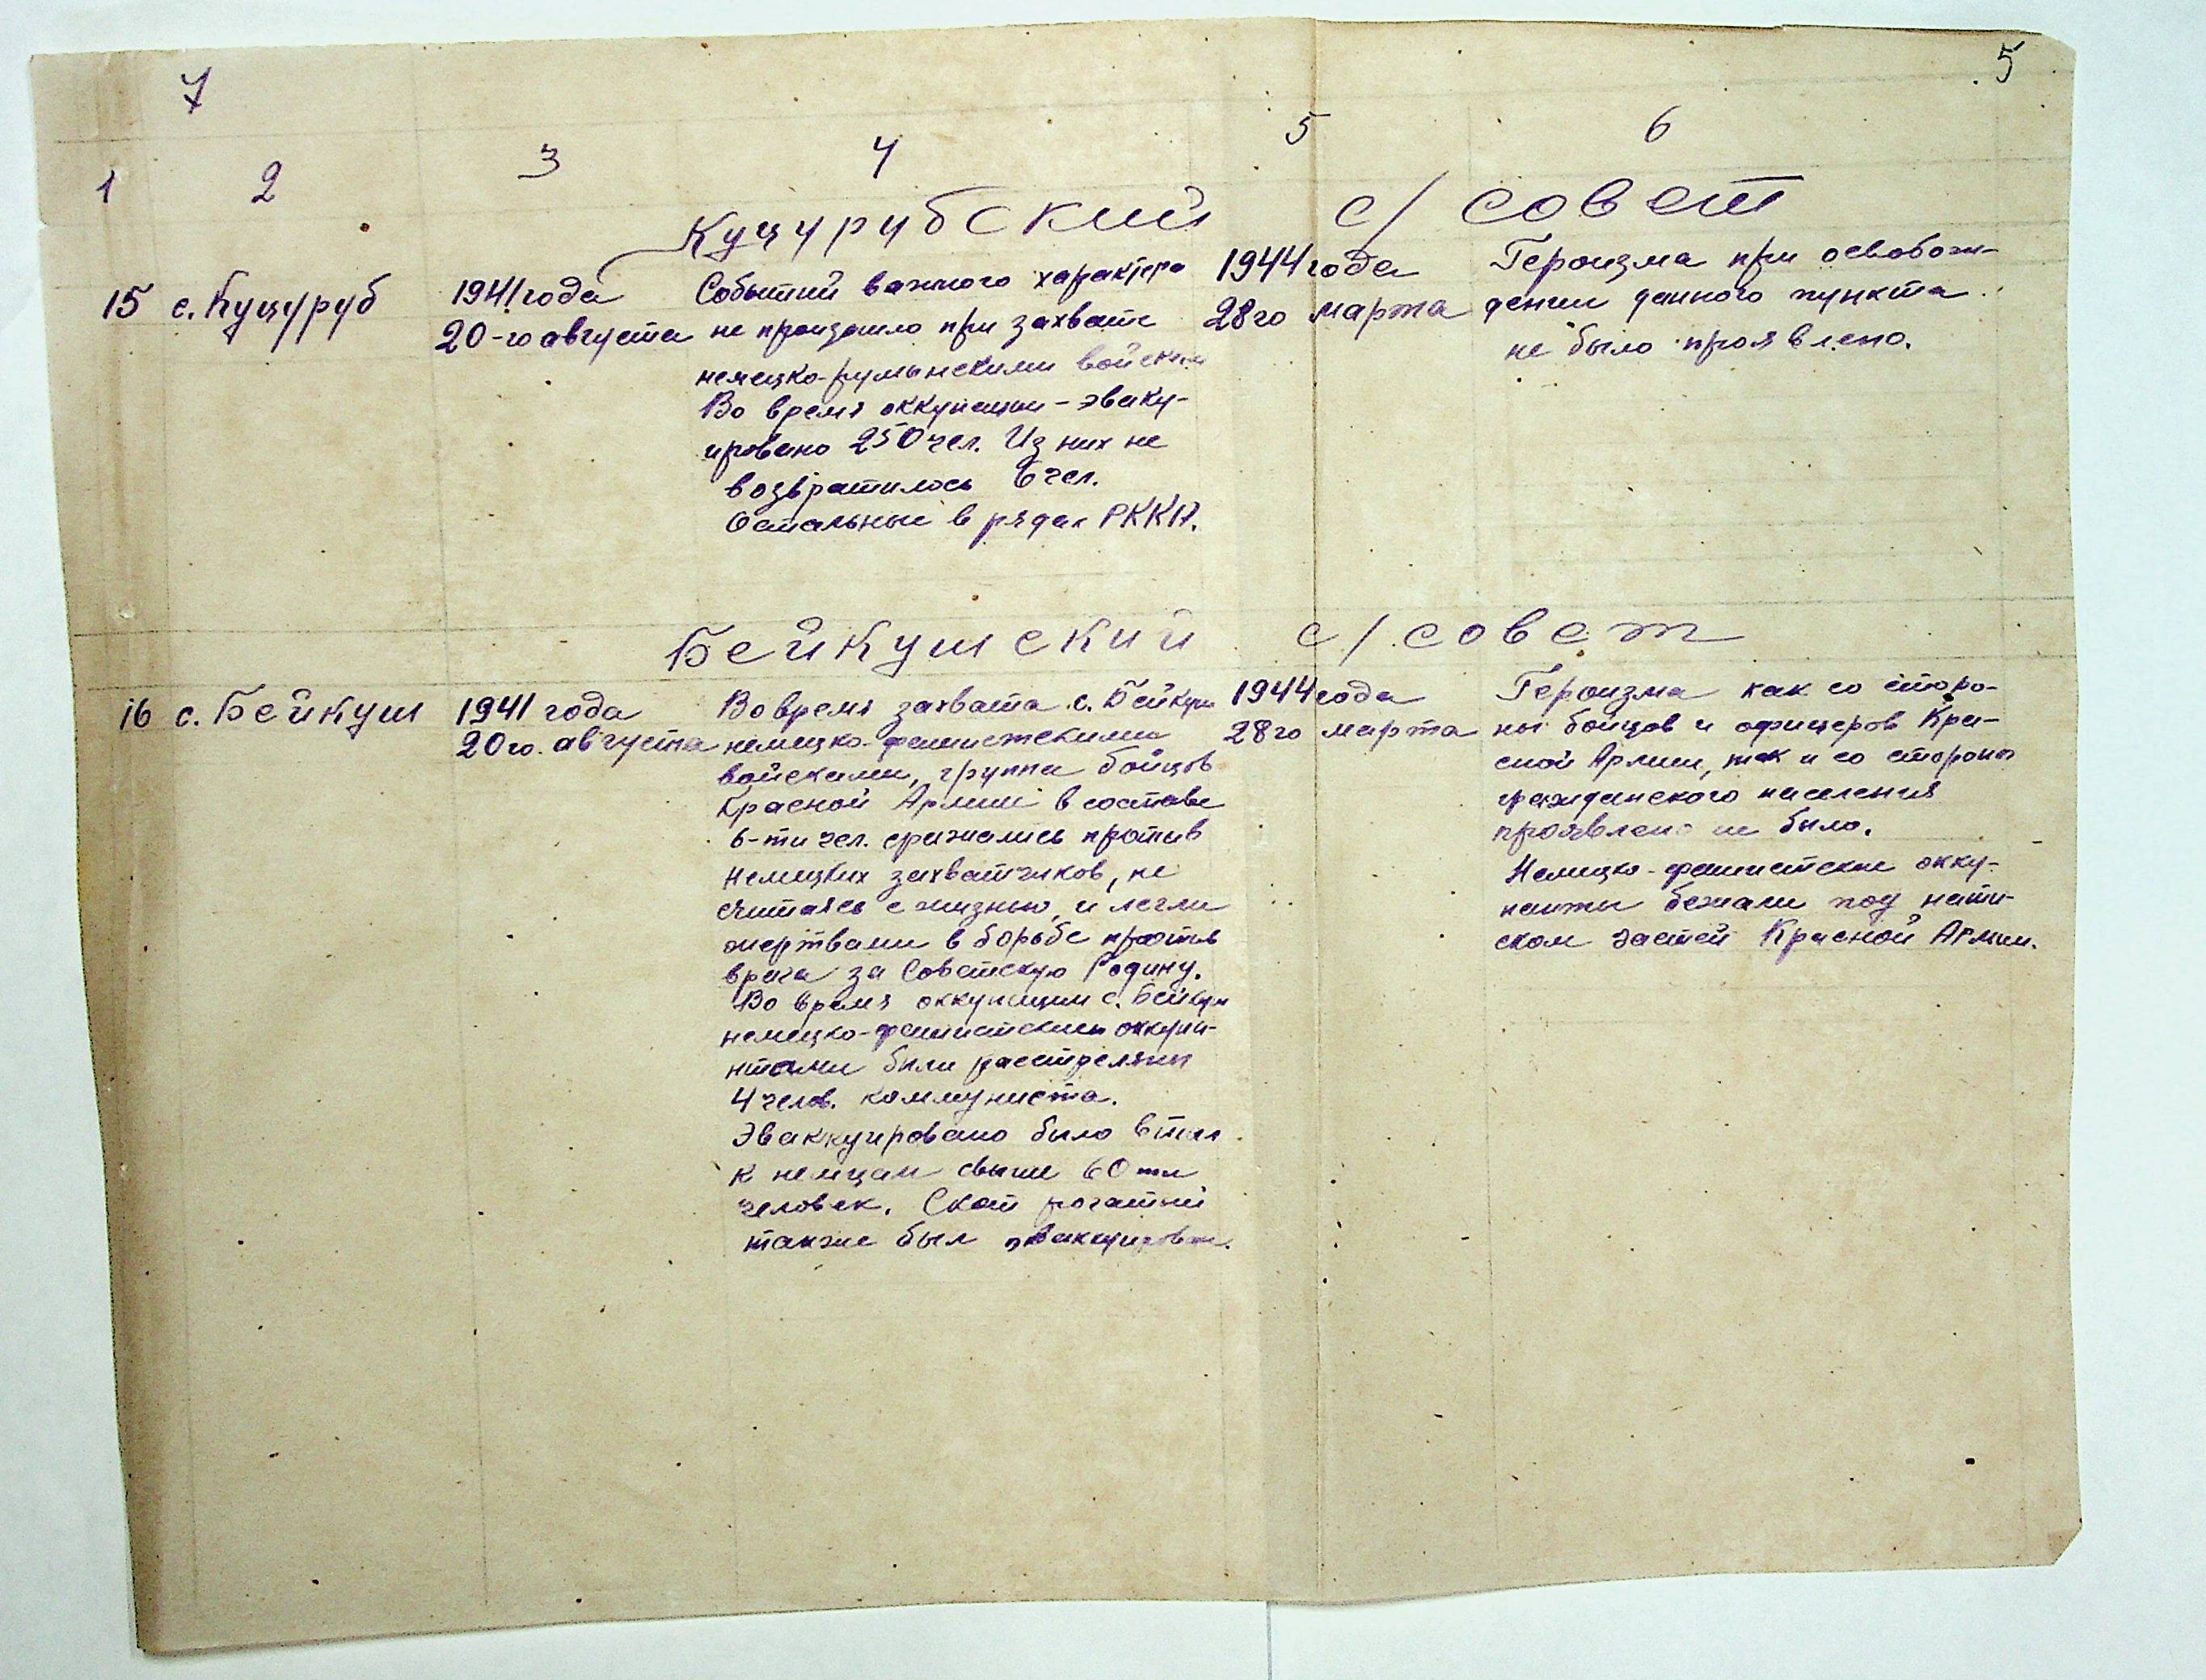 7
5
1 2 3 4 5 6
Куцурубский с/ совет
15 с. Куцуруб
1941 года
20-го августа
Событий важного характера
не произошло при захвате
немецко-румынскими войсками
Во время оккупации - эваку-
ировано 250 чел. Из них не
возвратилось 6 чел.
Остальные в рядах РККА.
1944 года
28го марта
Героизма при освобож-
дении данного пункта
не было проявлено.
Бейкушский с/ совет
16 с. Бейкуш
1941 года
20го. августа
Во время захвата с. Бейкуш
немецко-фашистскими
войсками, группа бойцов
Красной Армии в составе
6-ти чел. сражались против
немецких захватчиков, не
считаясь с жизнью, и легли
жертвами в борьбе против
врага за Советскую Родину.
Во время оккупации с. Бейкуш
немецко-фашистскими оккупа-
нтами были расстреляны
4 челов. коммуниста.
Эваккуировано было в тыл
к немцам свыше 60 ти
человек. Скот рогатый
также был эваккуирован.
1944 года
28го марта
Героизма как со сторо-
ны бойцов и офицеров Кра-
сной Армии, так и со стороны
гражданского населения
проявлено не было.
Немецко-фашистские окку-
панты бежали под нати-
ском частей Красной Армии.